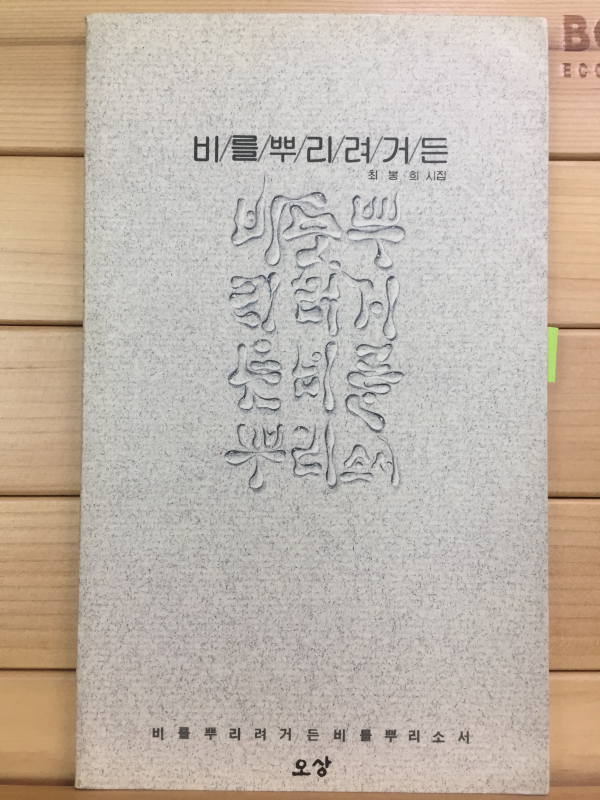 비/를/뿌/리/려/거/든
최 봉 희 시집
비를뿌
리려거
든비를
뿌리소서
비를뿌리려거든비를뿌리소서
오상